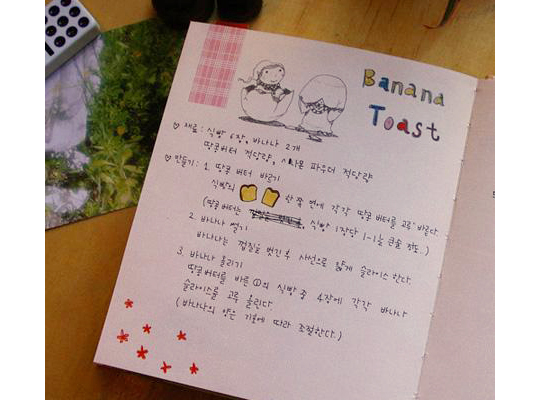 Banana
Toast
♡ 재료 : 식빵 6장, 바나나 2개
땅콩버터 적당량, 시나몬 파우더 적당량
♡ 만들기 : 1. 땅콩 버터 바르기
식빵의 한 쪽 면에 각각 땅콩버터를 고루 바른다.
(땅콩버터는 식빵 1장당 1-1½ 큰술 정도.)
2. 바나나 썰기
바나나는 껍질을 벗긴 후 사선으로 얇게 슬라이스 한다.
3. 바나나 올리기
땅콩버터를 바른 ①의 식빵 중 4장에 각각 바나나
슬라이스를 고루 올린다.
(바나나의 양은 기호에 따라 조절한다.)